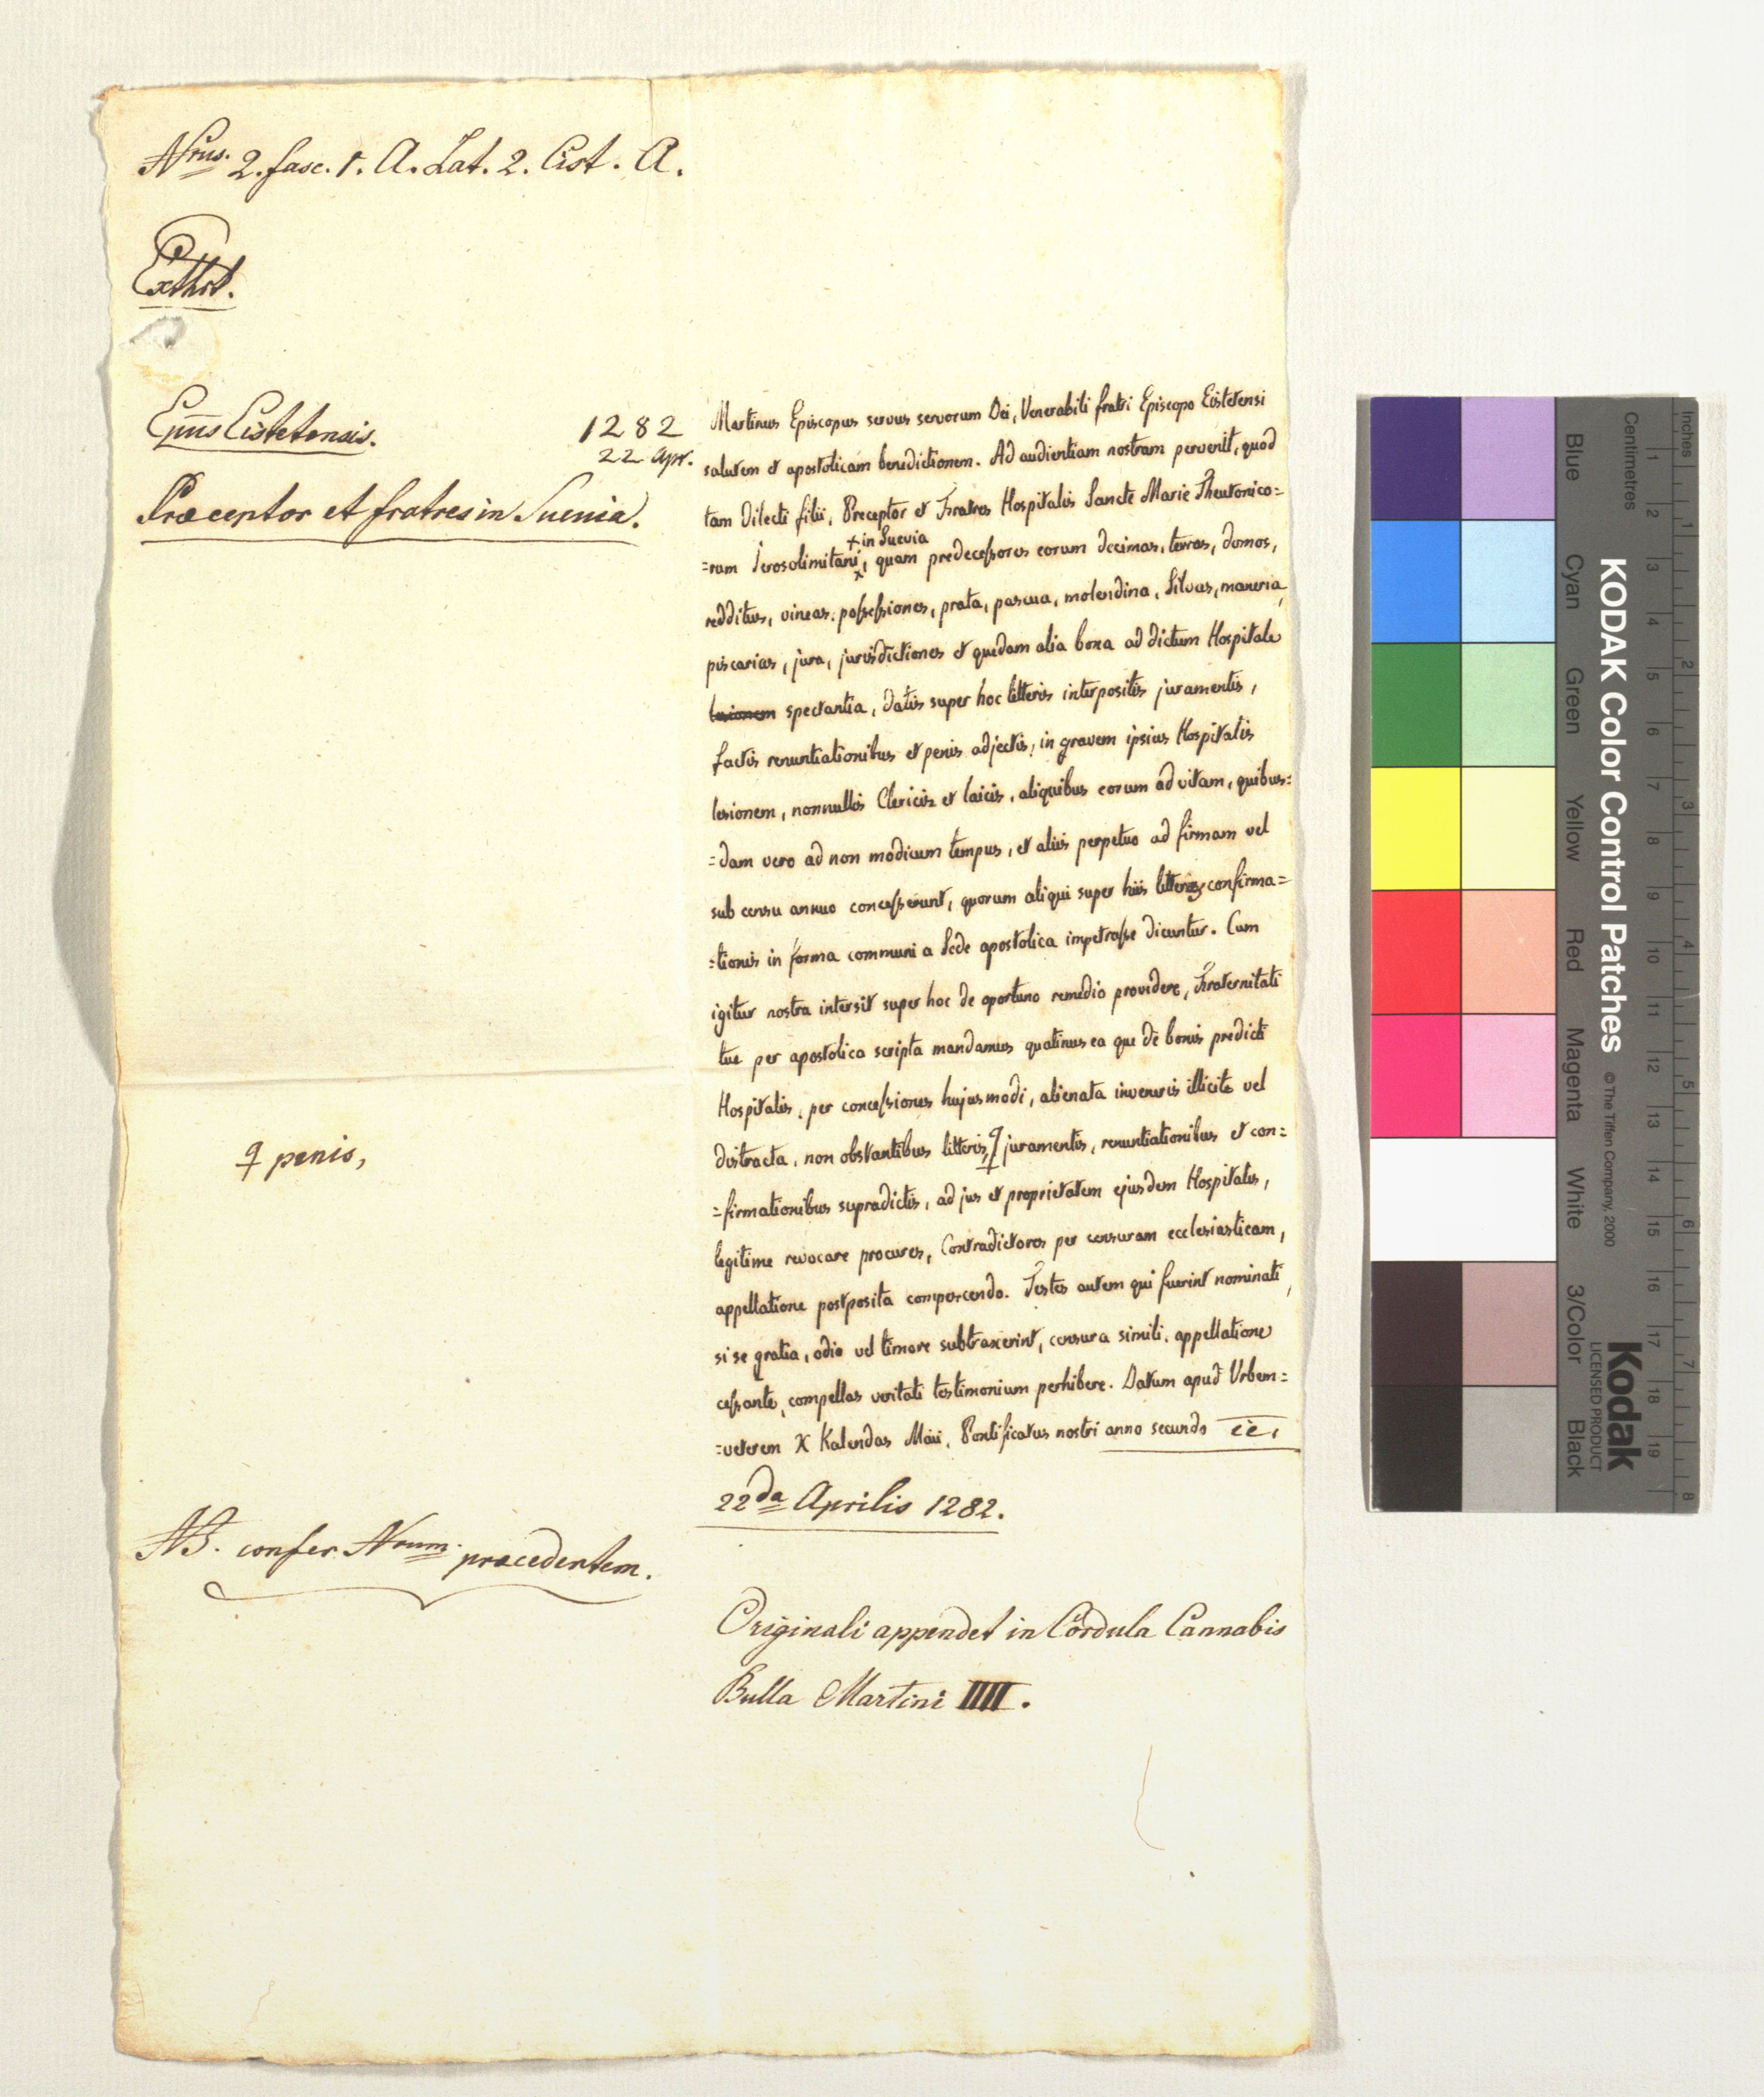 Nrus. 2. fasc. 1. A. Lat. 2. Cist. A.
Exthrt.
Epūs Eistetensis.
Præceptor et fratres in Suevia.
1282
22 apr.
Martinus Episcopus servus servorum Dei, Venerabili fratri Episcopo Eistetensi
salutem et apostolicam benedictionem. Ad audientiam nostram pervenit, quod
tam dilecti filii, Preceptor et Fratres Hospitalis Sancte Marie Theutonico=
+ in Suevia
=rum Ierosolimitani, quam predecessores eorum decimas, terras, domos,
redditus, vineas, possessiones, prata, pascua, molendina, silvas, maneria,
piscarias, jura, jurisdictiones et quedam alia bona ad dictum Hospitale
lesionem spectantia, datis super hoc litteris interpositis juramentis,
factis renuntiationibus et penis adjectis, in gravem ipsius Hospitalis
lesionem, nonnullis Clericis et laicis, aliquibus eorum ad vitam, quibus=
=dam vero ad non modicum tempus, et aliis perpetuo ad firmam vel
sub censu annuo concesserunt, quorum aliqui super hiis litteras confirma=
=tionis in forma communi a Sede apostolica impetrasse dicuntur. Cum
igitur nostra intersit super hoc de oportuno remedio providere, Fraternitati
tue per apostolica scripta mandamus quatinus ea que de bonis predicti
Hospitalis, per concessiones hujusmodi, alienata inveneris illicite vel
distracta, non obstantibus litteris, juramentis, renuntiationibus et con=
=firmationibus supradictis, ad jus et proprietatem ejusdem Hospitalis,
legitime revocare procures, Contradictores per censuram ecclesiasticam,
appellatione postposita compescendo. Testes autem qui fuerint nominati,
si se gratia, odio vel timore subtraxerint, censura simili, appellatione
cessante, compellas veritati testimonium perhibere. Datum apud Urbem=
=veterem X Kalendas Maii, Pontificatus nostri anno secundo īē,
penis,
22da Aprilis 1282.
NB. confer Nrum præcedentem.
Originali appendet in Cordula Cannabis
Bulla Martini IIII.
KODAK Color Control Patches
© The Tiffen Company, 2000
Kodak
LICENSED PRODUCT
Inches
Centimetres
Blue
Cyan
Green
Yellow
Red
Magenta
White
3/Color
Black
1 2 3 4 5 6 7 8 9 10 11 12 13 14 15 16 17 18 19
1 2 3 4 5 6 7 8